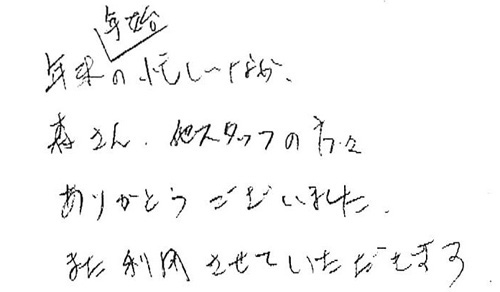 年始
年末の忙しいなか、
森さん、他スタッフの方々
ありがとうございました。
また利用させていただきます